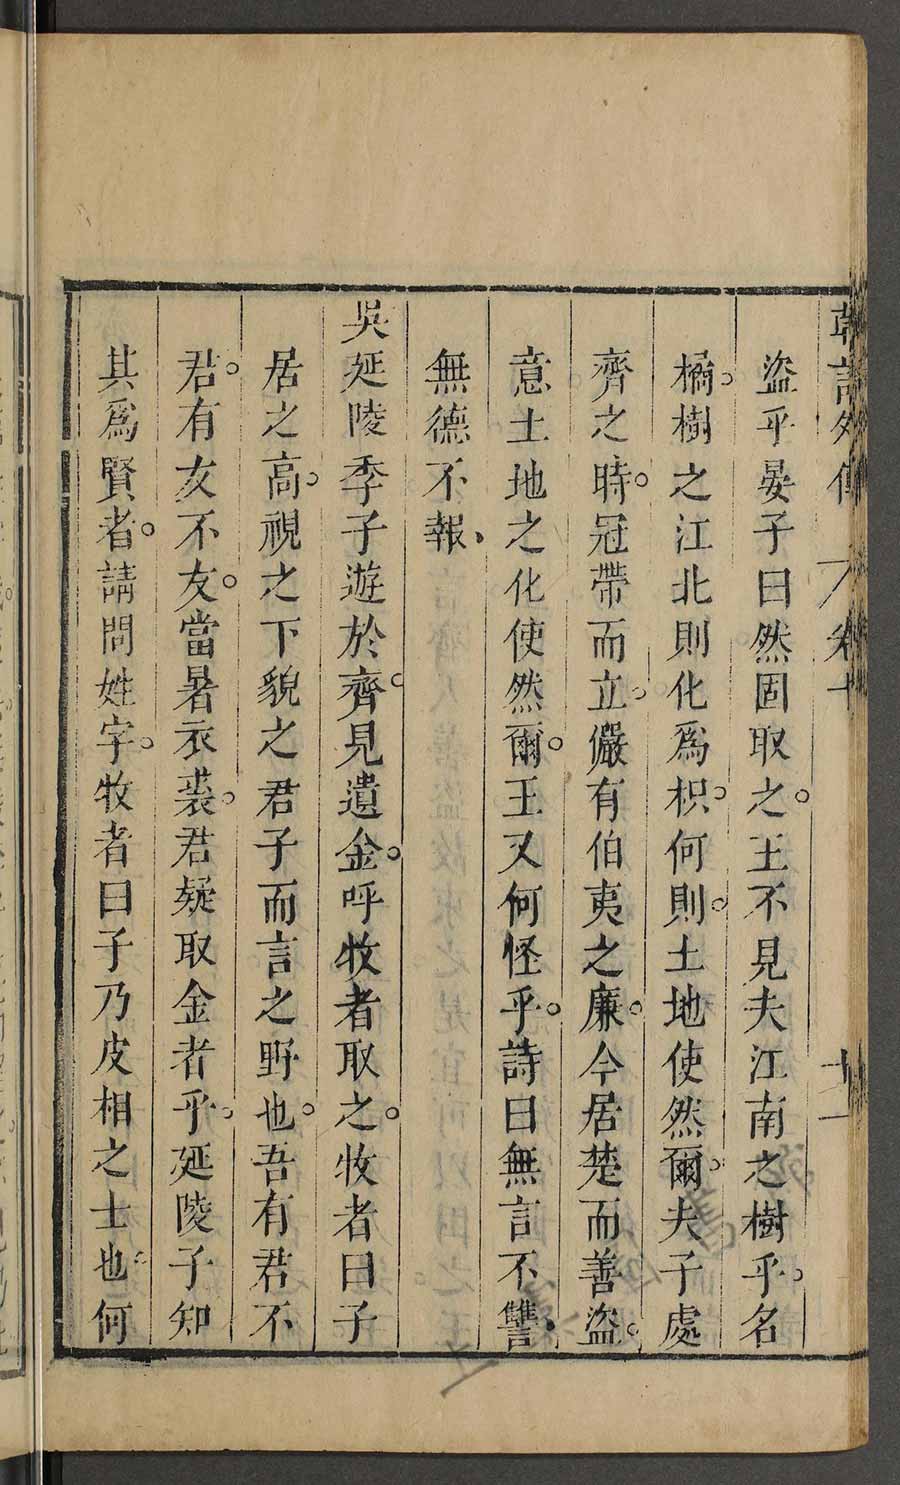 韓詩外傳 卷十 十二
盜乎晏子曰然固取之。王不見夫江南之樹乎。名
橘。樹之江北則化爲枳。何則。土地使然爾。夫子處
齊之時。冠帶而立。儼有伯夷之廉。今居楚而善盜。
意土地之化使然爾。王又何怪乎。詩曰無言不讐、
無德不報、
吳延陵季子遊於齊。見遺金。呼牧者取之。牧者曰子
居之高。視之下貌之君子而言之野也。吾有君不
君。有友不友。當暑衣裘。君疑取金者乎。延陵子知
其爲賢者。請問姓字。牧者曰子乃皮相之士也。何